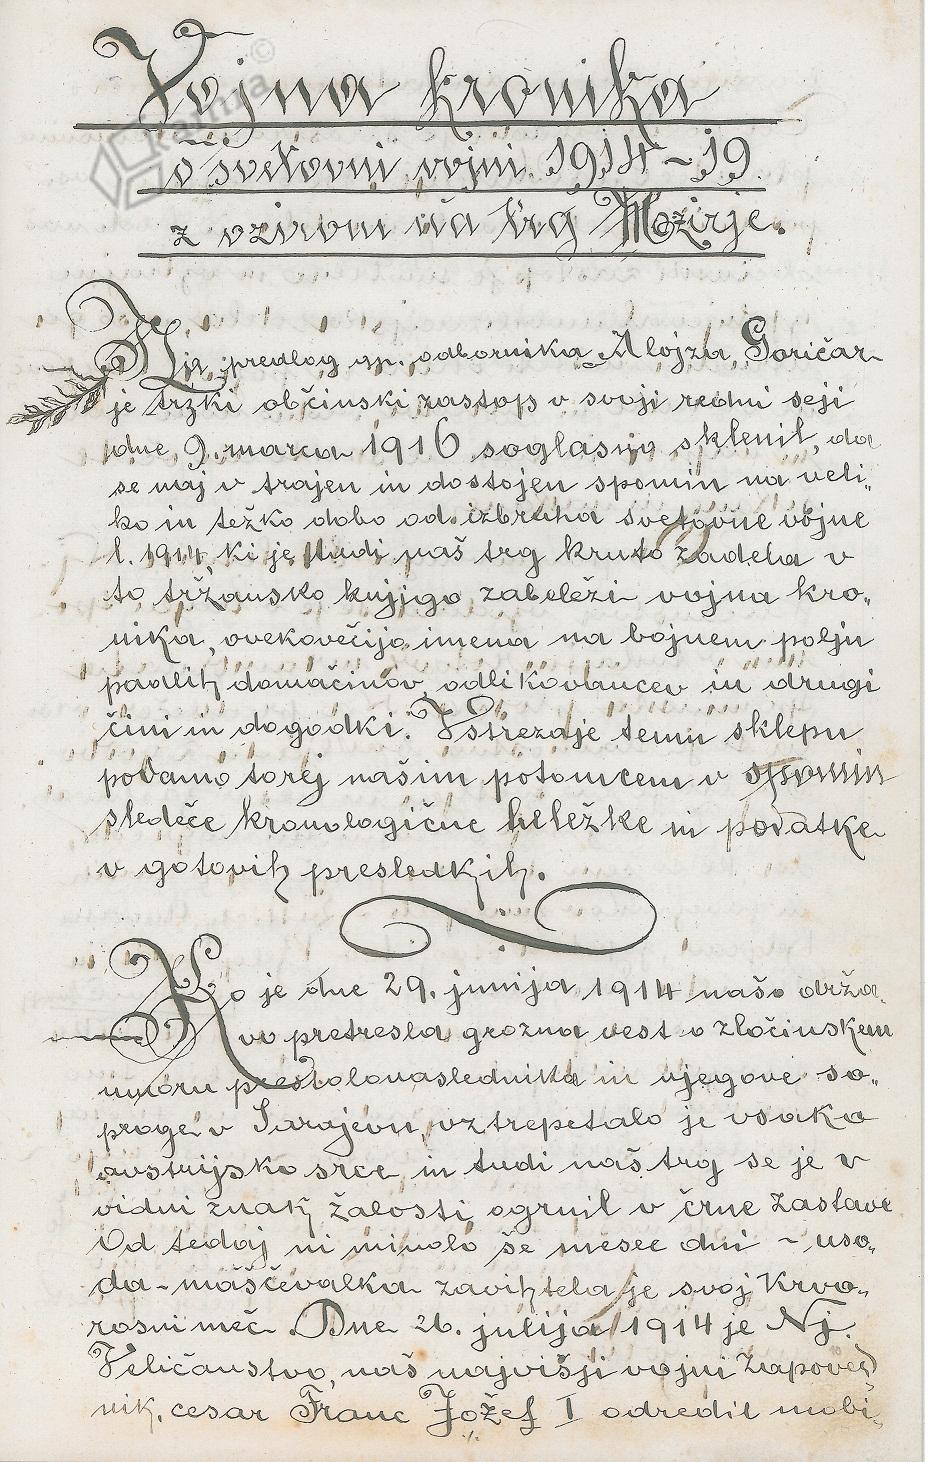 Vojna kronika
o svetovni vojni 1914-19.
z ozirom na trg Mozirje.
Na predlog gp. odbornika Alojza Goričar
je trški občinski zastop v svoji redni seji
dne 9. marca 1916 soglasno sklenil, da
se naj v trajen in dostojen spomin na veli„
ko in težko dobo od izbruha svetovne vojne
l. 1914, ki je tudi naš trg kruto zadela v
to tržansko knjigo zabeleži vojna kro„
nika, ovekovečijo imena na bojnem polju
padlih domačinov, odlikovancev in drugi
čini in dogodki. Vstrezaje temu sklepu
podamo torej našim potomcem v spomin
sledeče kronologične beležke in podatke
v gotovih presledkih.
Ko je dne 29. junija 1914 našo drža„
vo pretresla grozna vest o zločinskem
umoru prestolonaslednika in njegove so„
proge v Sarajevu, vztrepetalo je vsako
avstrijsko srce in tudi naš trg se je v
vidni znak žalosti ogrnil v črne zastave
Od tedaj ni minolo še mesec dni - uso„
da-maščevalka zavihtela je svoj krvo„
rosni meč. Dne 26. julija 1914 je Nj.
Veličanstvo, naš najvišji vojni zapoved
nik, cesar Franc Jožef I odredil mobi„
kamra ©